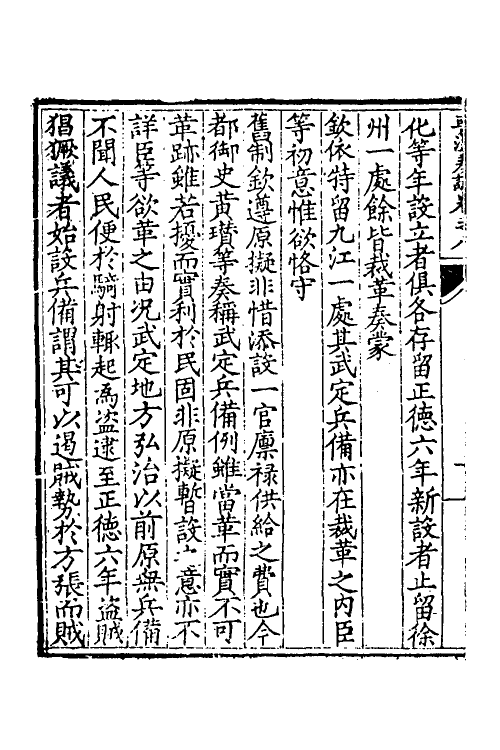 化等年設立者俱各存留正德六年新設者止留徐
州一處餘皆裁革奏蒙
欽依特留九江一處其武定兵備亦在裁革之内臣
等初意惟欲恪守
舊制欽遵原擬非惜添設一官廪禄供給之費也今
都御史黃瓚等奏稱武定兵備例雖當革而實不可
革跡雖若擾而實利於民固非原擬暫設之意亦不
詳臣等欲革之由况武定地方弘治以前原無兵備
不聞人民便於騎射輙起為盗逮至正德六年盗賊
猖獗議者始設兵備謂其可以遏賊勢於方張而賊